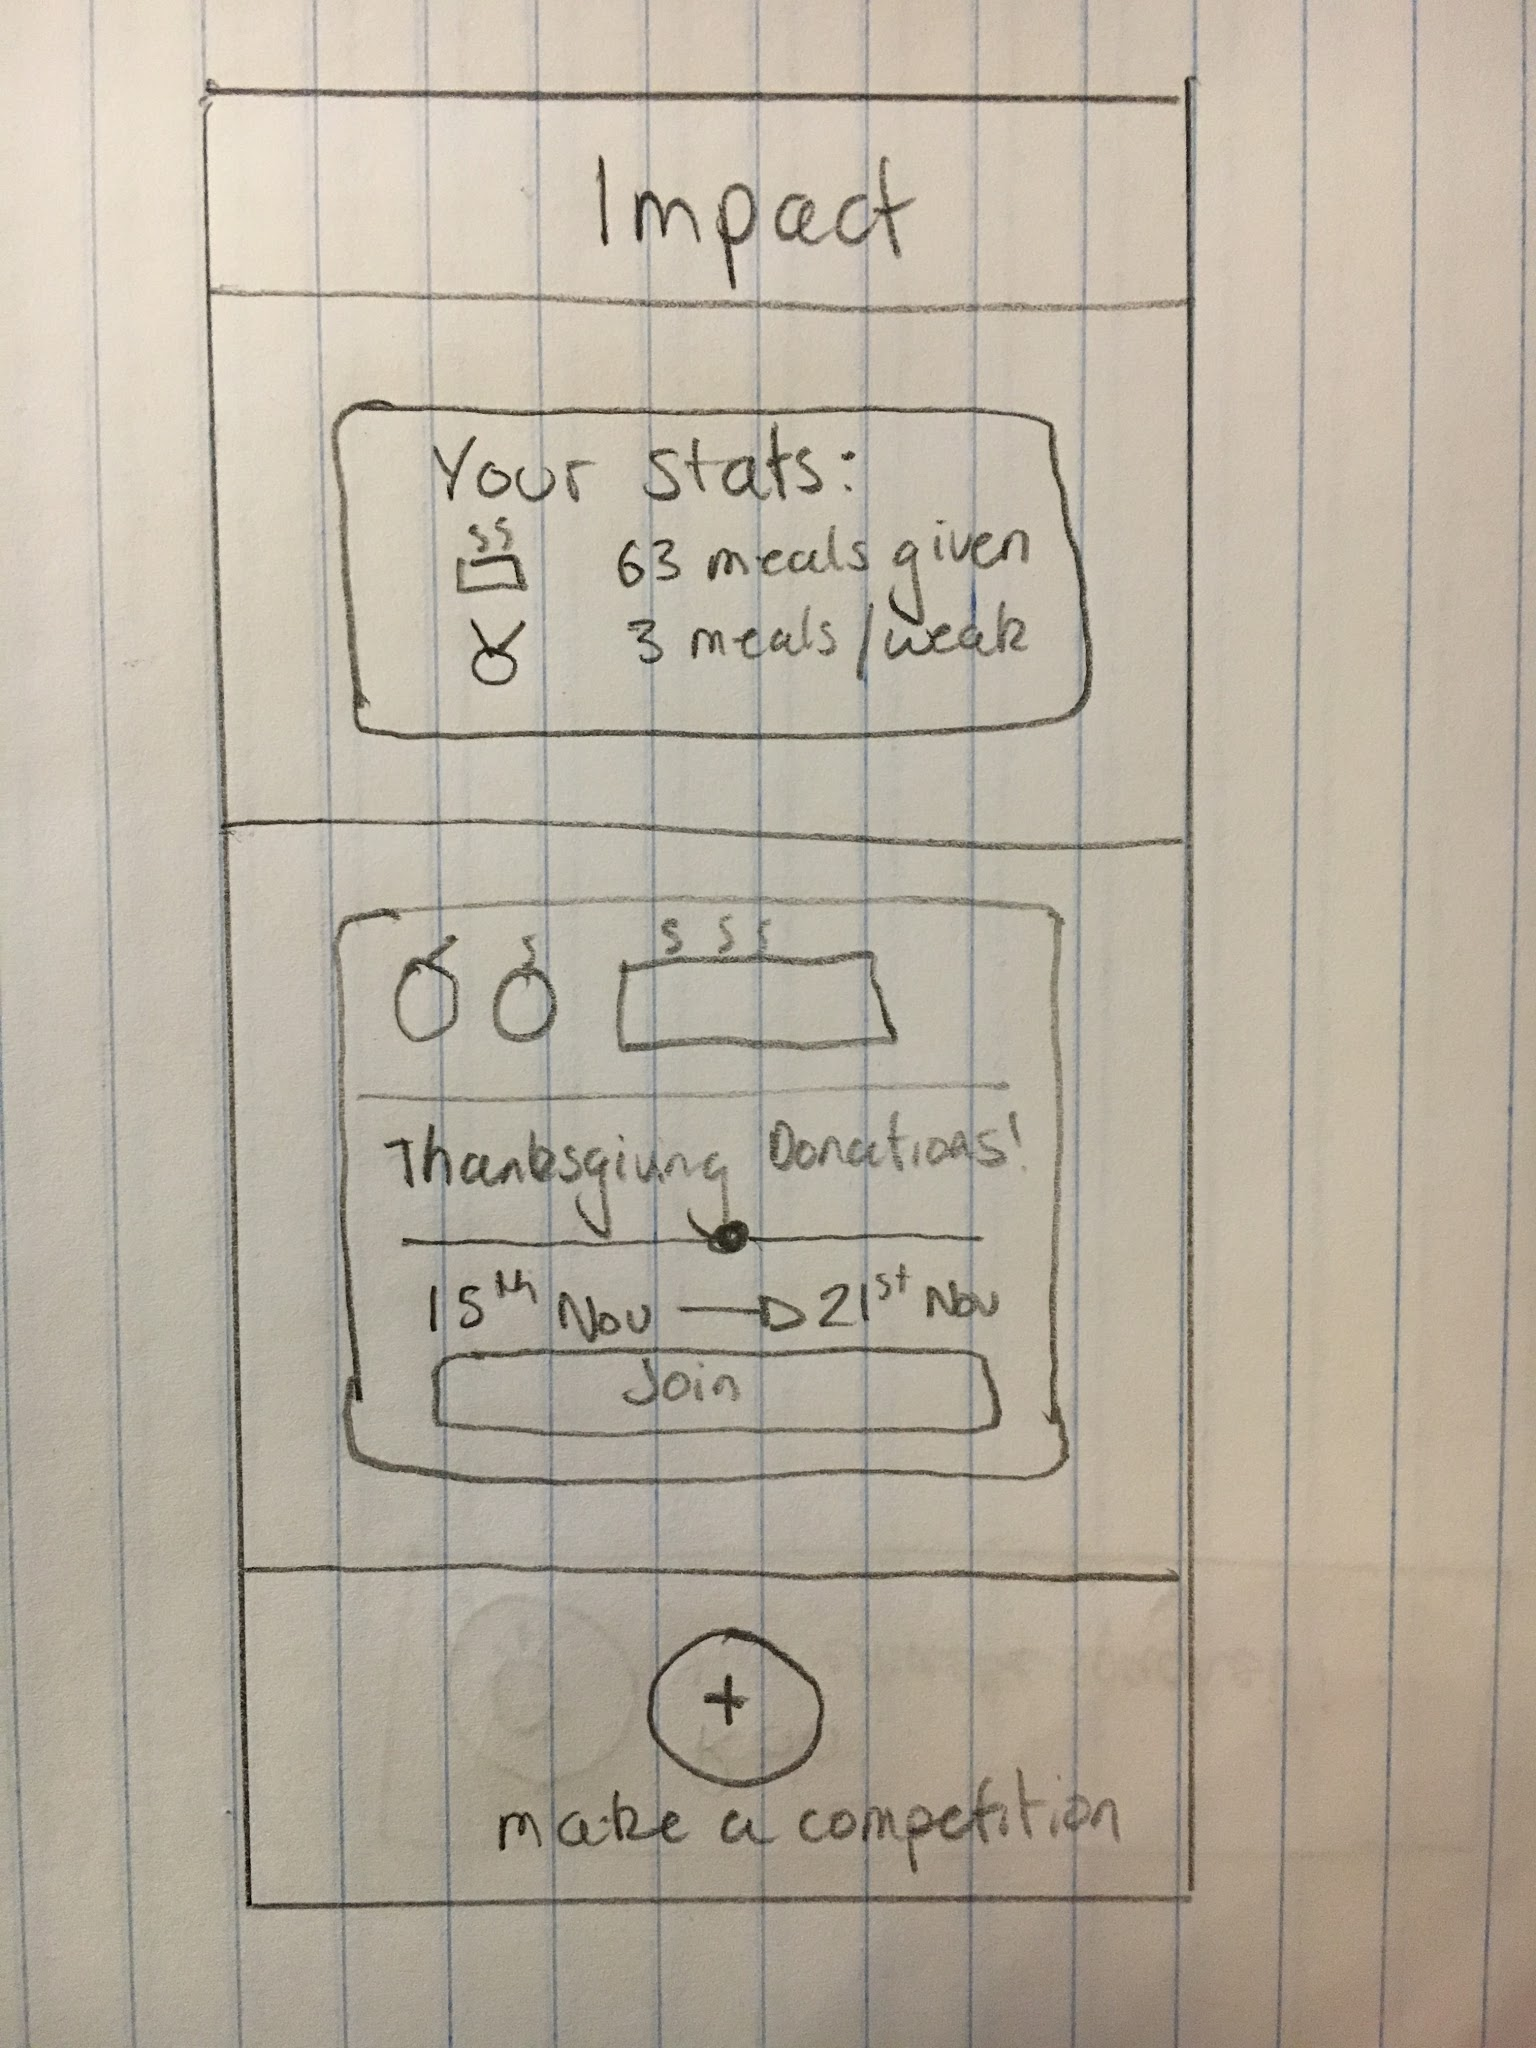 Impact
Your Stats:
63 meals given
3 meals/weak
Thanksgiving Donations!
15th Nov → 21st Nov
Join
+
make a competition